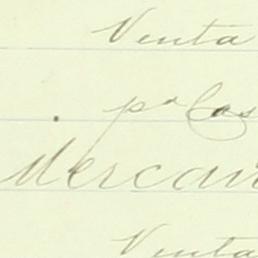 Venta
pª Cos
Mercan
Venta